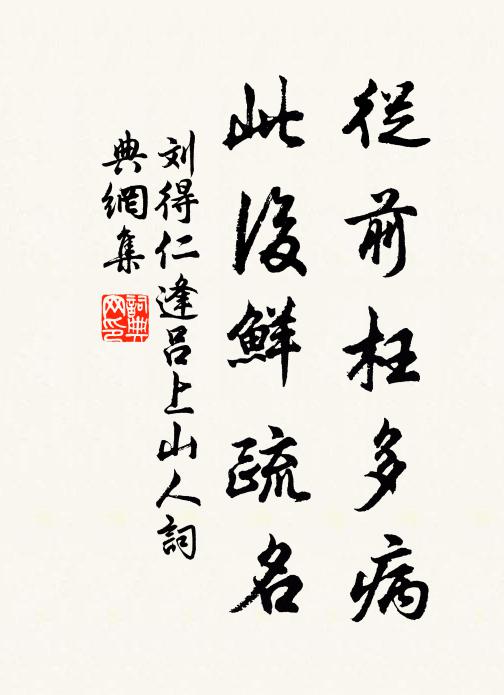 從前枉多病
此後鮮疏名
刘得仁逢呂上山人詞
典網集
詞典網印